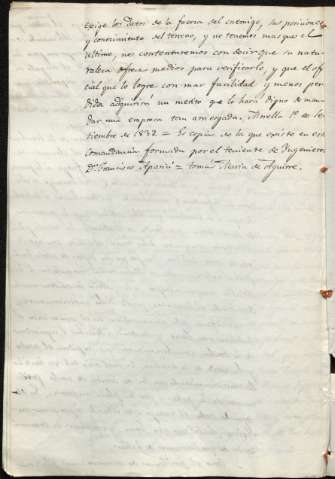 exige los datos de la fuerza del enemigo, su posicion
y conocimiento del terreno, y no tenemos mas que el
ultimo, nos contentaremos con decir que su natu-
raleza ofrece medios para verificarlo, y que el ofi-
cial que lo logre con mas facilidad y menos per-
dida adquirirá un merito que lo hará digno de man-
dar una empresa tan arriesgada. Morella 1º de Se-
tiembre de 1832 = Es copia de la que existe en esta
Comandancia formada por el teniente de Ingenieros
Dn Francisco Aparici = Tomas Maria de Aguirre.